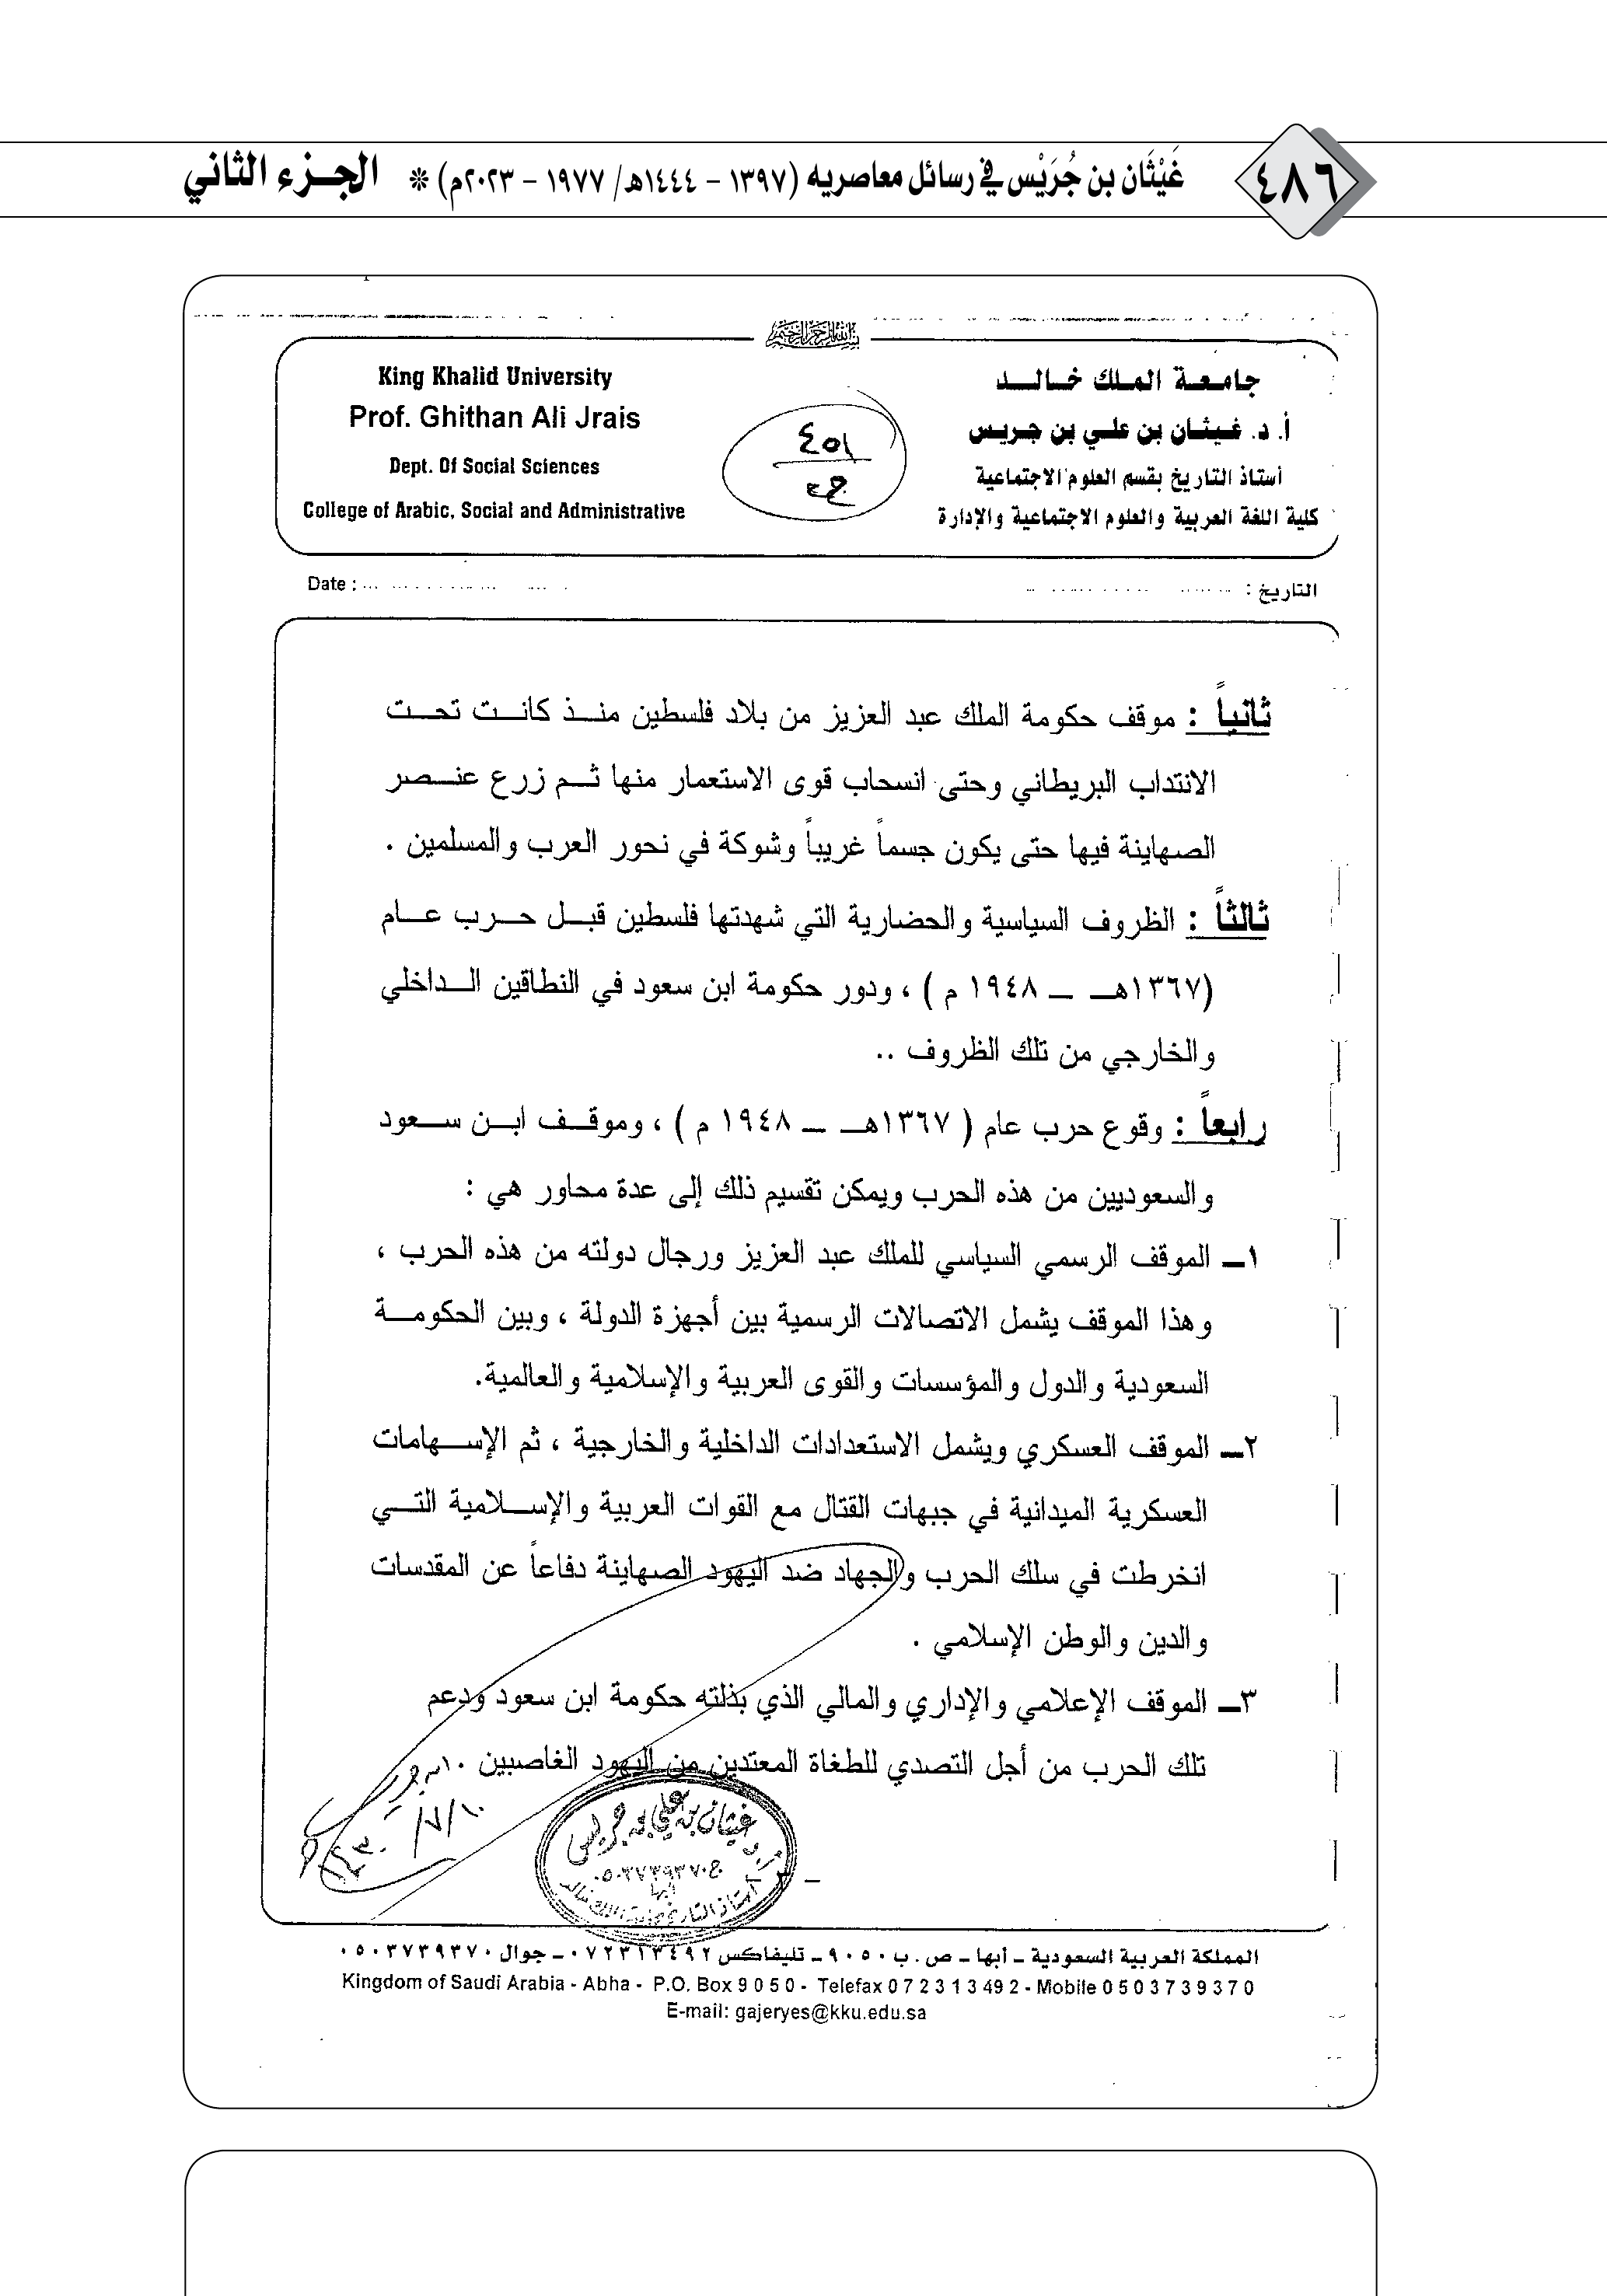 ٤٨٦
غَيْثَان بن جُرَيْس في رسائل معاصريه (١٣٩٧ – ١٤٤٤هـ/ ١٩٧٧ – ٢٠٢٣م) * الجزء الثاني
بسم الله الرحمن الرحيم
جامعة الملك خالد
أ. د. غيثان بن علي بن جريس
أستاذ التاريخ بقسم العلوم الاجتماعية
كلية اللغة العربية والعلوم الاجتماعية والإدارة
King Khalid University
Prof. Ghithan Ali Jrais
Dept. Of Social Sciences
College of Arabic, Social and Administrative
التاريخ :
Date :
ثانياً : موقف حكومة الملك عبد العزيز من بلاد فلسطين منذ كانت تحت
الانتداب البريطاني وحتى انسحاب قوى الاستعمار منها ثم زرع عنصر
الصهاينة فيها حتى يكون جسماً غريباً وشوكة في نحور العرب والمسلمين .
ثالثاً : الظروف السياسية والحضارية التي شهدتها فلسطين قبل حرب عام
(١٣٦٧هـ – ١٩٤٨ م ) ، ودور حكومة ابن سعود في النطاقين الداخلي
والخارجي من تلك الظروف ..
رابعاً : وقوع حرب عام ( ١٣٦٧هـ – ١٩٤٨ م ) ، وموقف ابن سعود
والسعوديين من هذه الحرب ويمكن تقسيم ذلك إلى عدة محاور هي :
١– الموقف الرسمي السياسي للملك عبد العزيز ورجال دولته من هذه الحرب ،
وهذا الموقف يشمل الاتصالات الرسمية بين أجهزة الدولة ، وبين الحكومة
السعودية والدول والمؤسسات والقوى العربية والإسلامية والعالمية.
٢– الموقف العسكري ويشمل الاستعدادات الداخلية والخارجية ، ثم الإسهامات
العسكرية الميدانية في جبهات القتال مع القوات العربية والإسلامية التي
انخرطت في سلك الحرب والجهاد ضد اليهود الصهاينة دفاعاً عن المقدسات
والدين والوطن الإسلامي .
٣– الموقف الإعلامي والإداري والمالي الذي بذلته حكومة ابن سعود ودعم
تلك الحرب من أجل التصدي للطغاة المعتدين من اليهود الغاصبين .
غيثان بن علي بن جريس
ج ٠٥٠٣٧٣٩٣٧٠
أبها
المملكة العربية السعودية – أبها – ص . ب ٩٠٥٠ – تليفاكس ٠٧٢٣١٣٤٩٢ – جوال ٠٥٠٣٧٣٩٣٧٠
Kingdom of Saudi Arabia - Abha - P.O. Box 9 0 5 0 - Telefax 0 7 2 3 1 3 49 2 - Mobile 0 5 0 3 7 3 9 3 7 0
E-mail: gajeryes@kku.edu.sa